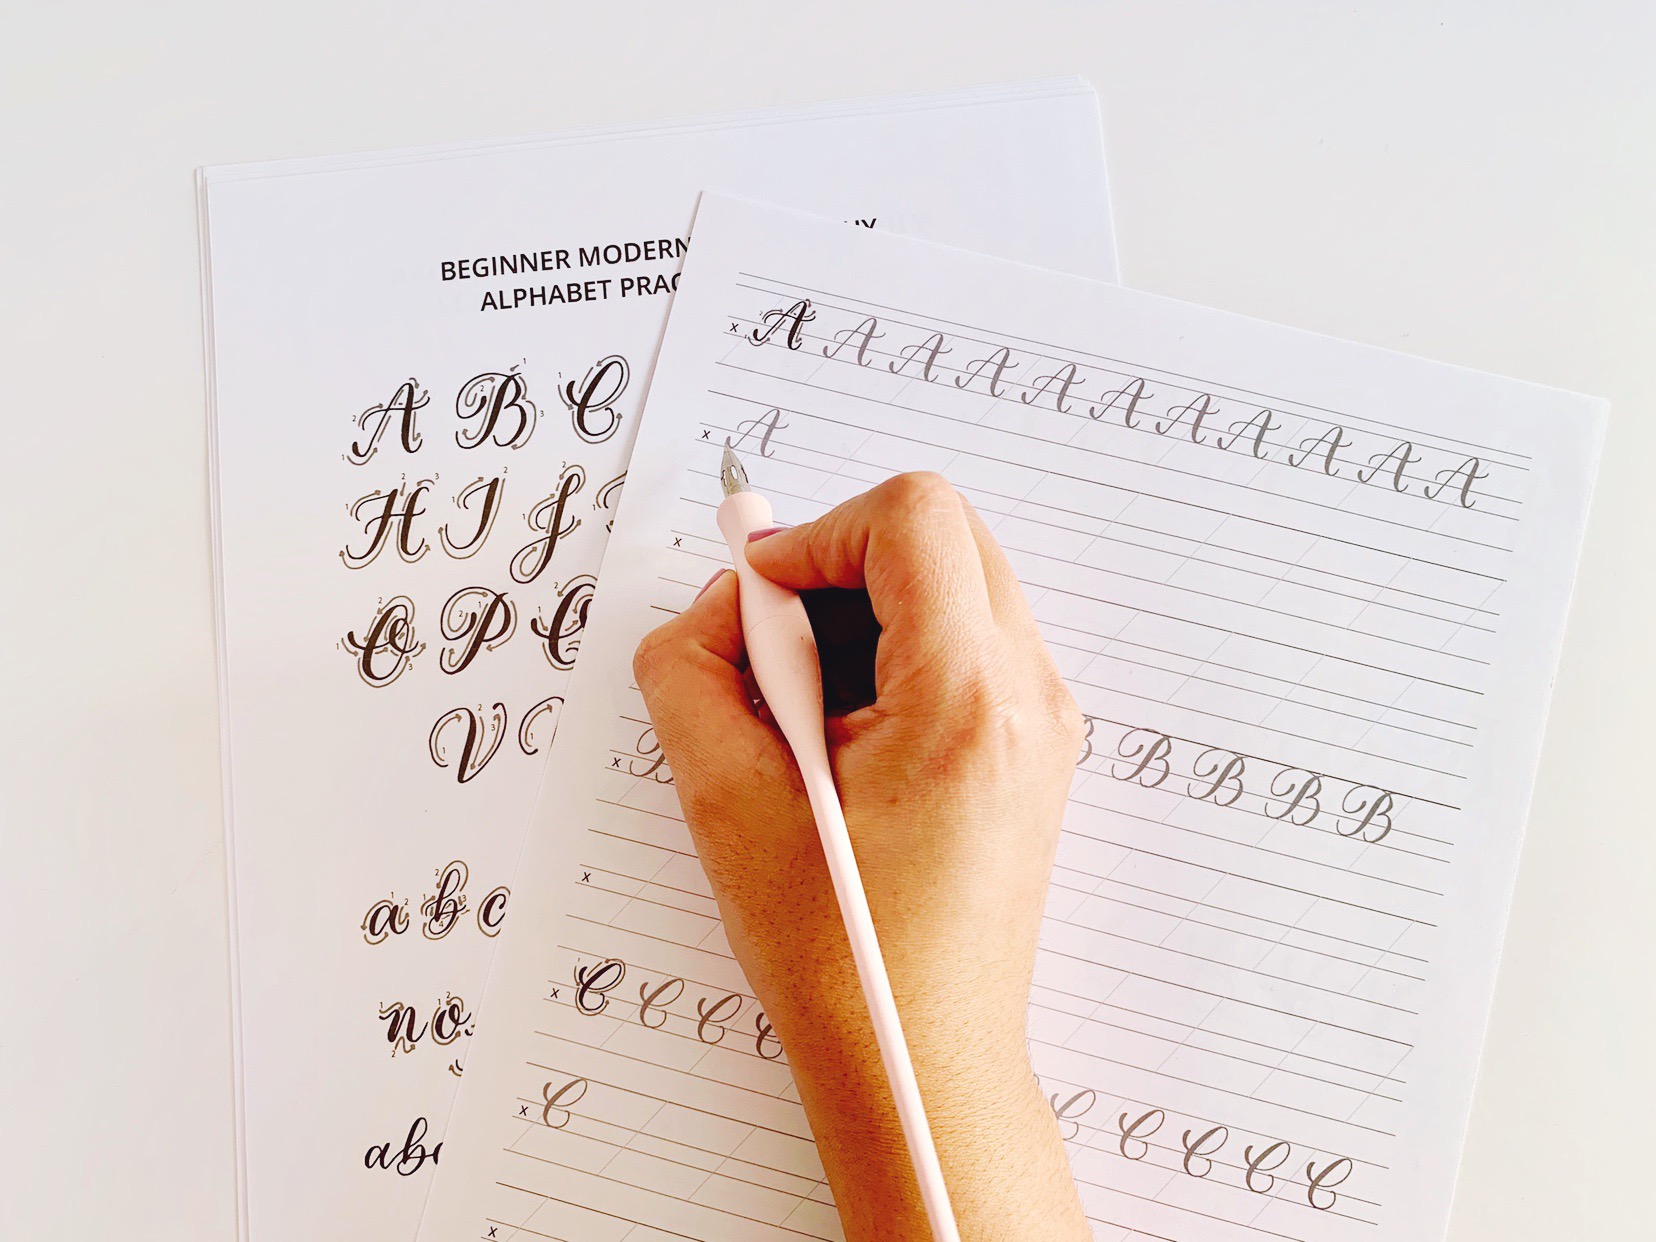 BEGINNER MODERN
ALPHABET
A B C
H I J
O P
V
a b c
n o
ab
x A A A A A A A A A A A
x A
x
B B B B
x B
x
x C C C C C C C C
x C
x